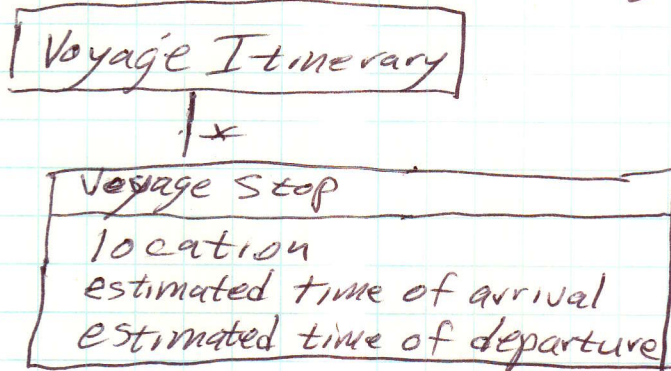 Voyage Itinerary
*
Voyage Stop
location
estimated time of arrival
estimated time of departure